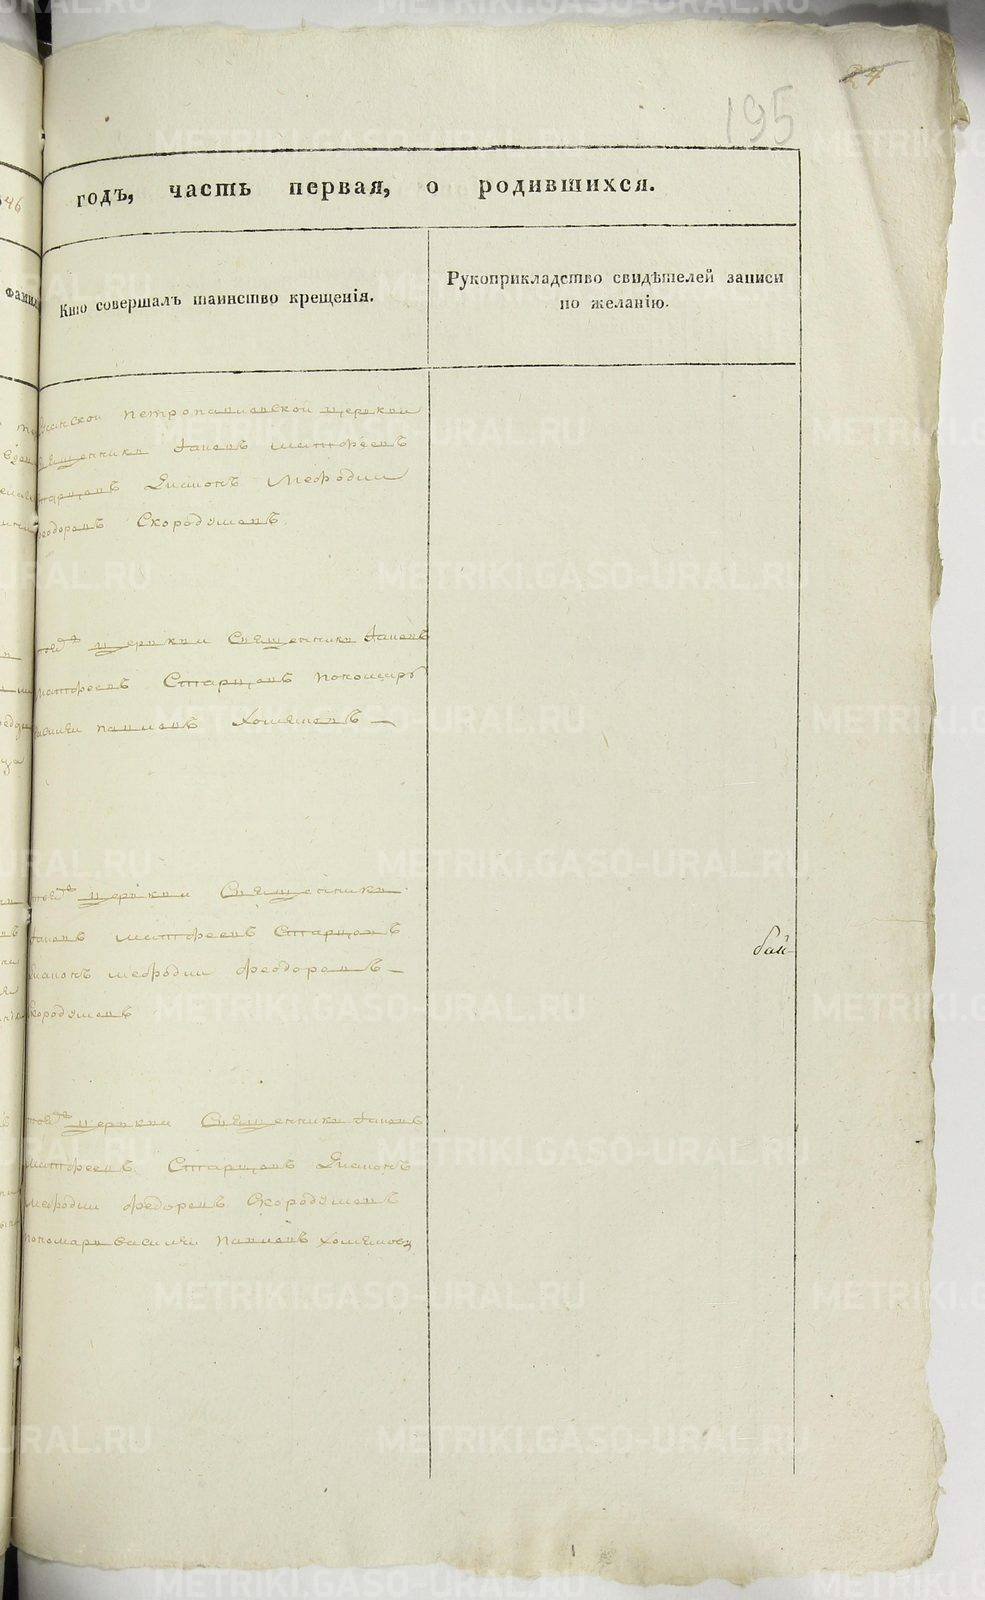 195
24
годъ, часть первая, о родившихся.
46
Кто совершалъ таинство крещенія.
Рукоприкладство свидѣтелей записи
по желанію.
Петропавловской церкви
Священникъ Іаковъ Матфеевъ
Старцовъ Діаконъ Мефодіи
Феодоровъ Скородумовъ
тоей церкви Священникъ Іаковъ
Матфеевъ Старцовъ пономарь
Василеи Павловъ Хомяковъ
тоей церкви Священникъ
Іаковъ Матфеевъ Старцовъ
Діаконъ Мефодіи Феодоровъ
Скородумовъ
бай
тоей церкви Священникъ Іаковъ
Матфеевъ Старцовъ Діаконъ
Мефодіи Федоровъ Скородумовъ
пономарь Василеи Павловъ Хомяковъ
METRIKI.GASO-URAL.RU